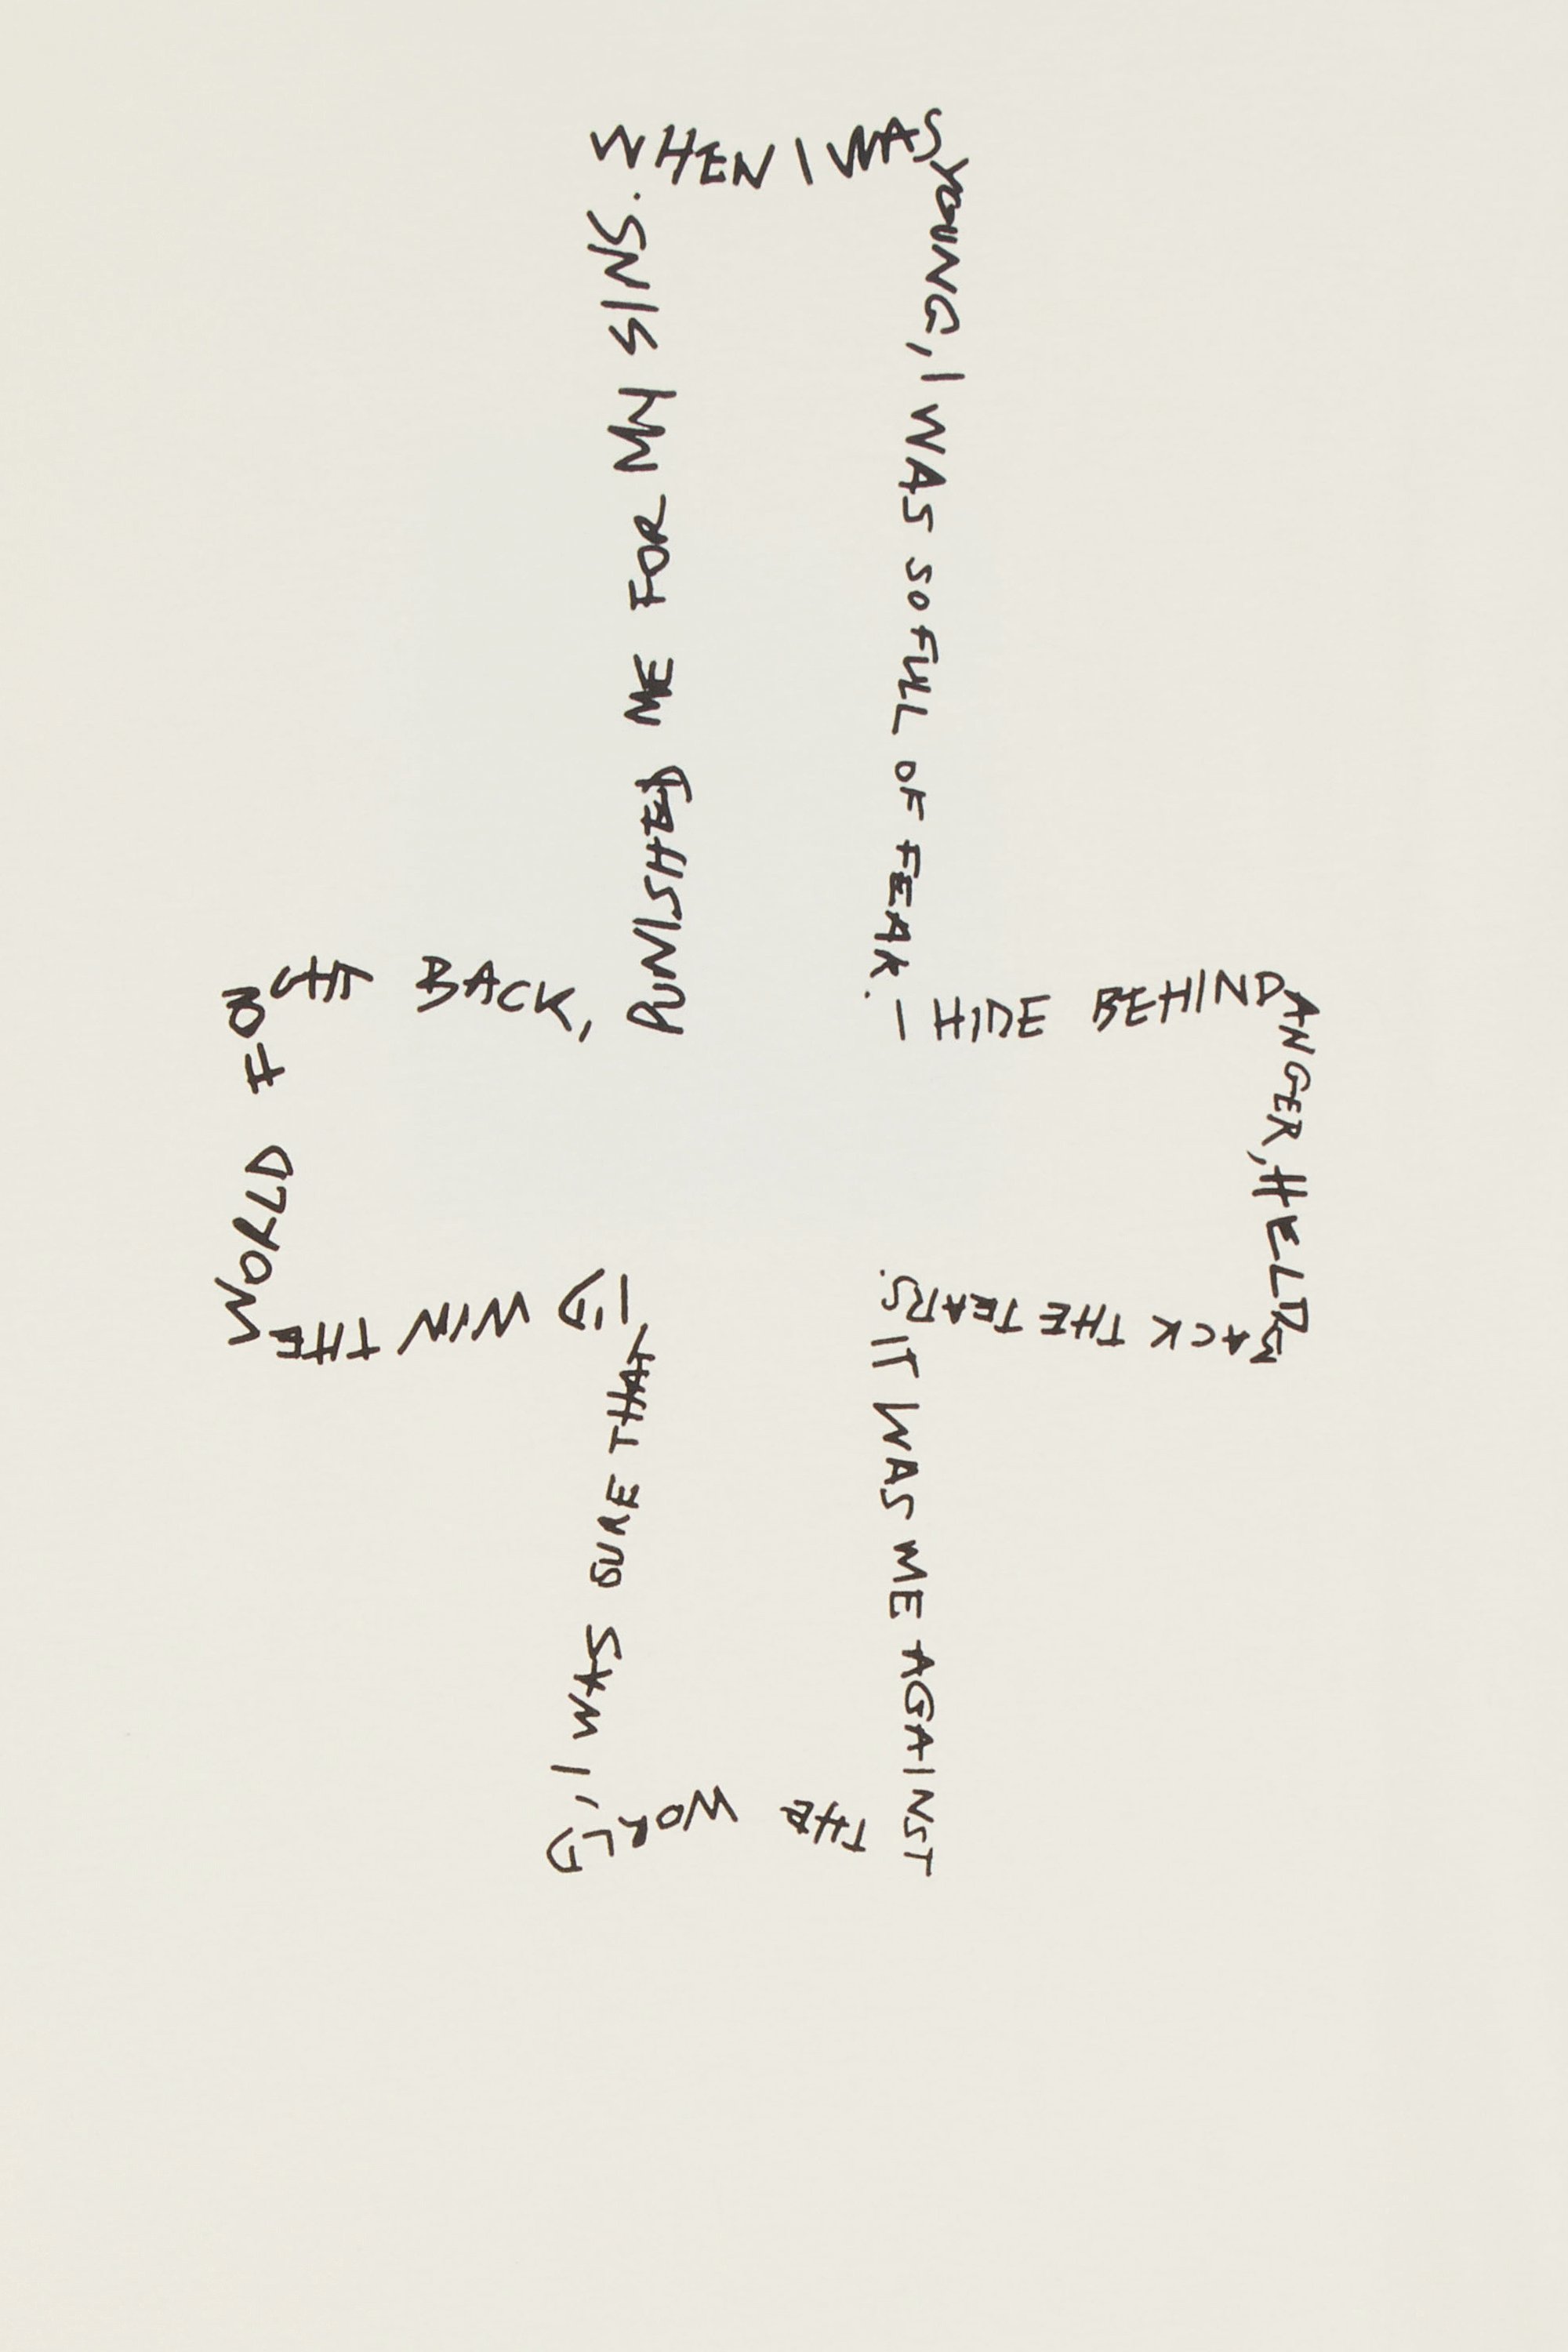 WHEN I WAS
YOUNG, I WAS SO FULL OF FEAR.
I HIDE BEHIND
ANGER, HELD B
ACK THE TEARS.
IT WAS ME AGAINST
THE WORLD,
I WAS SURE THAT
I'D WIN THE
WORLD FOU
GHT BACK,
PUNISHED ME FOR MY SINS.